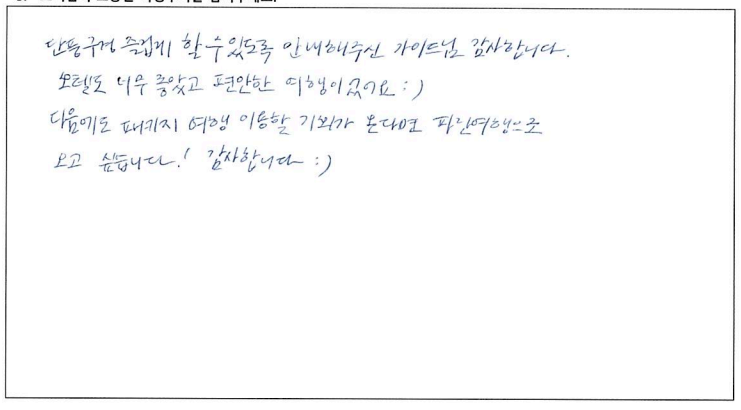 단풍구경 즐겁게 할 수 있도록 안내해주신 가이드님 감사합니다.
호텔도 너무 좋았고 편안한 여행이였어요 :)
다음에도 패키지 여행 이용할 기회가 온다면 파란여행으로
오고 싶습니다! 감사합니다 :)